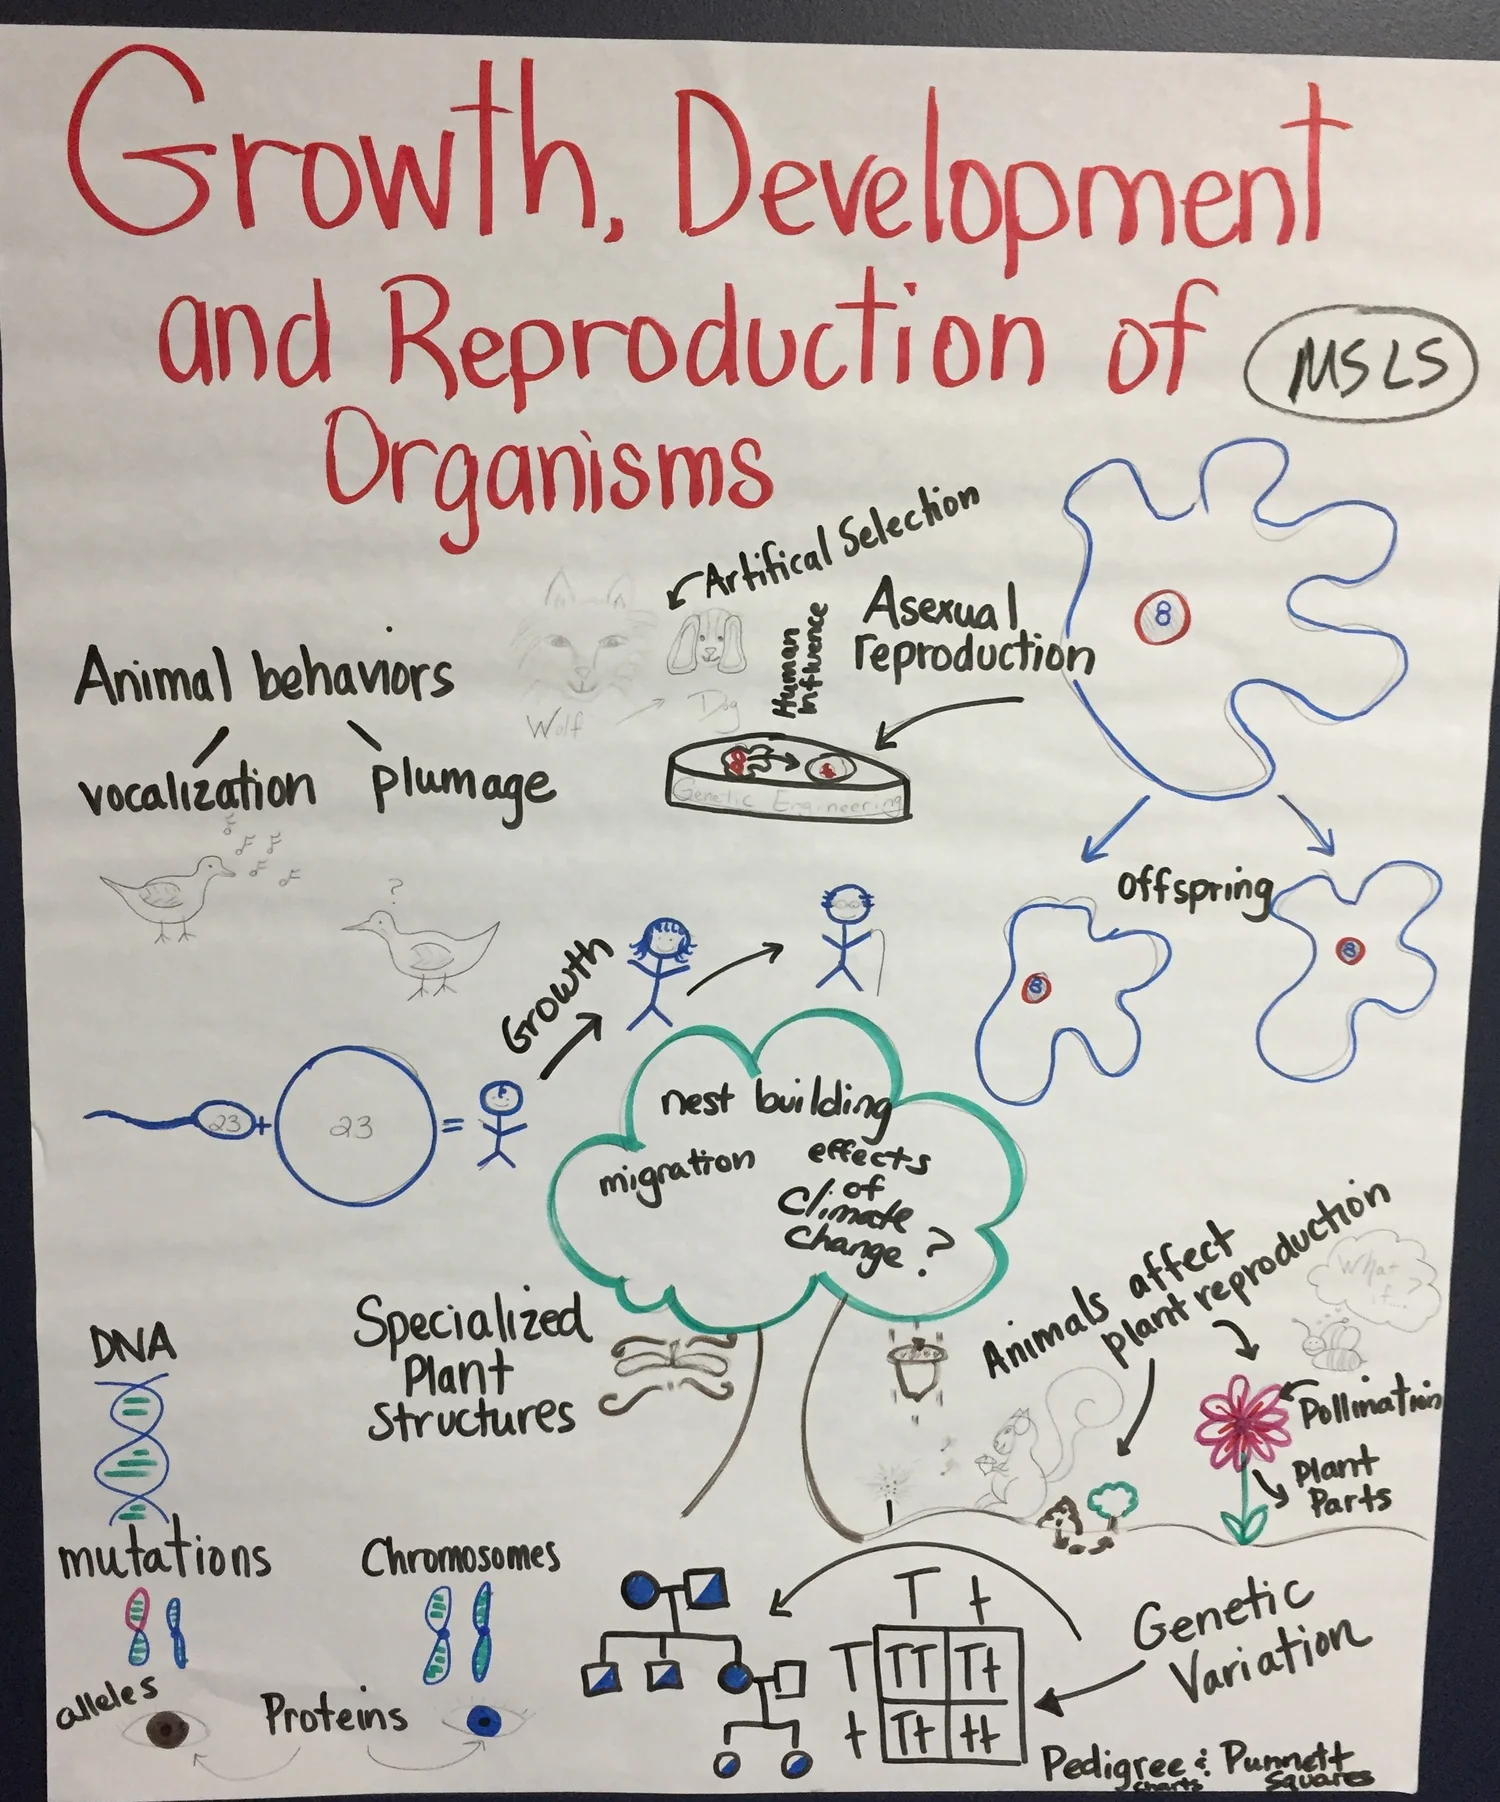 Growth, Development
and Reproduction of
MSLS
Organisms
Artifical Selection
Human
influence
Asexual
reproduction
8
Animal behaviors
vocalization
plumage
Wolf
Dog
Genetic Engineering
?
offspring
8
8
Growth
23
+
23
=
nest building
migration
effects
of
Climate
change?
Animals affect
plant reproduction
What
if...?
Specialized
Plant
Structures
Pollination
Plant
Parts
DNA
mutations
Chromosomes
alleles
Proteins
T t
T TT Tt
t Tt tt
Genetic
Variation
Pedigree & Punnett
charts Squares